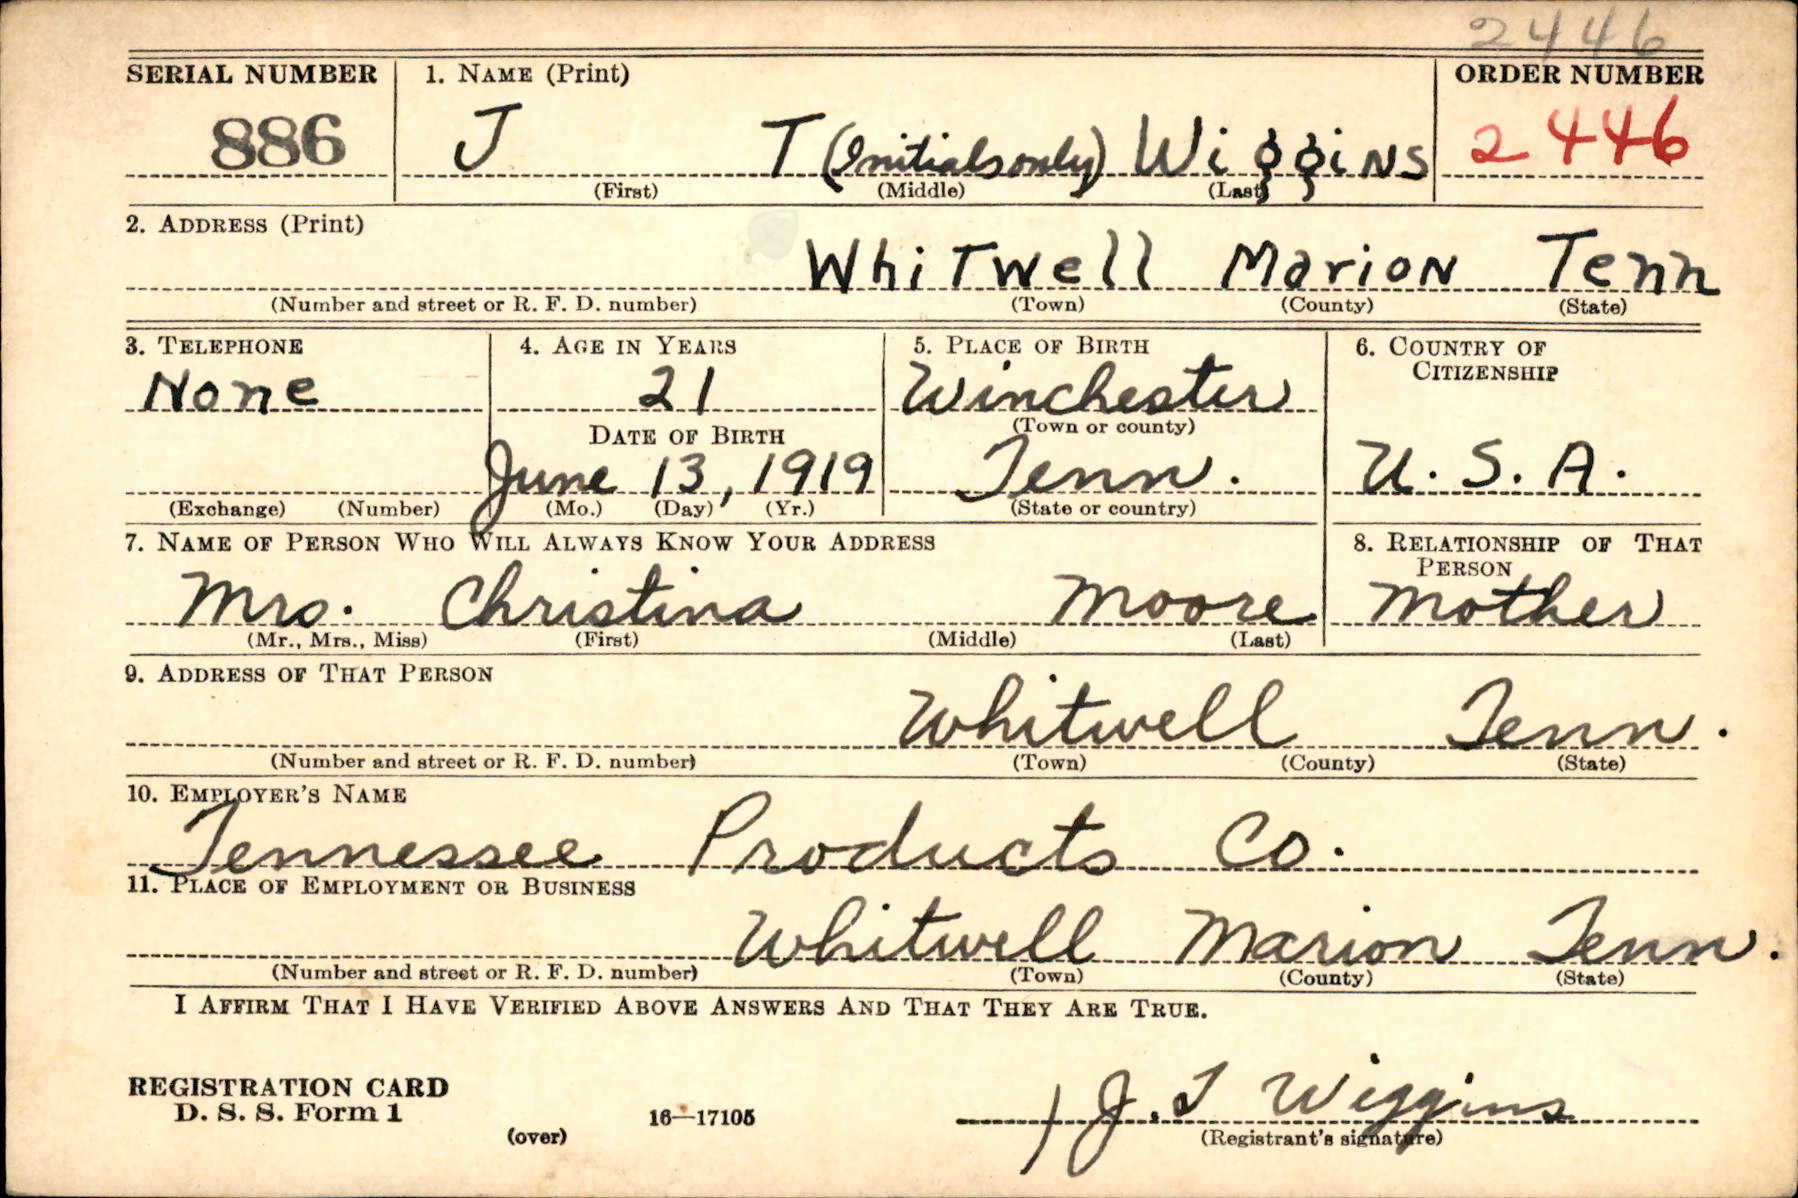 2446
SERIAL NUMBER 1. NAME (Print) ORDER NUMBER
886 J T (Initials only) Wiggins 2446
(First) (Middle) (Last)
2. ADDRESS (Print)
Whitwell Marion Tenn
(Number and street or R. F. D. number) (Town) (County) (State)
3. TELEPHONE 4. AGE IN YEARS 5. PLACE OF BIRTH 6. COUNTRY OF
CITIZENSHIP
None 21 Winchester
DATE OF BIRTH (Town or county)
June 13, 1919 Tenn. U. S. A.
(Exchange) (Number) (Mo.) (Day) (Yr.) (State or country)
7. NAME OF PERSON WHO WILL ALWAYS KNOW YOUR ADDRESS 8. RELATIONSHIP OF THAT
PERSON
Mrs. Christina Moore Mother
(Mr., Mrs., Miss) (First) (Middle) (Last)
9. ADDRESS OF THAT PERSON
Whitwell Tenn.
(Number and street or R. F. D. number) (Town) (County) (State)
10. EMPLOYER'S NAME
Tennessee Products Co.
11. PLACE OF EMPLOYMENT OR BUSINESS
Whitwell Marion Tenn.
(Number and street or R. F. D. number) (Town) (County) (State)
I AFFIRM THAT I HAVE VERIFIED ABOVE ANSWERS AND THAT THEY ARE TRUE.
REGISTRATION CARD
D. S. S. Form 1 16—17105 J. T Wiggins
(over) (Registrant's signature)